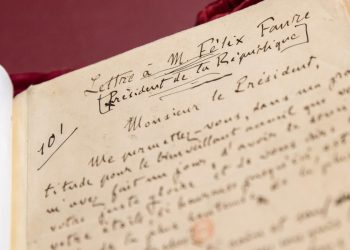 Lettre à M. Félix Faure
Président de la République
101
Monsieur le Président,
Me permettez-vous, dans ma gra
titude pour le bienveillant accueil que
m'avez fait un jour, d'avoir le
votre juste gloire et de vous dire
votre étoile, si heureuse jusqu'ici,
de la plus honteuse, de